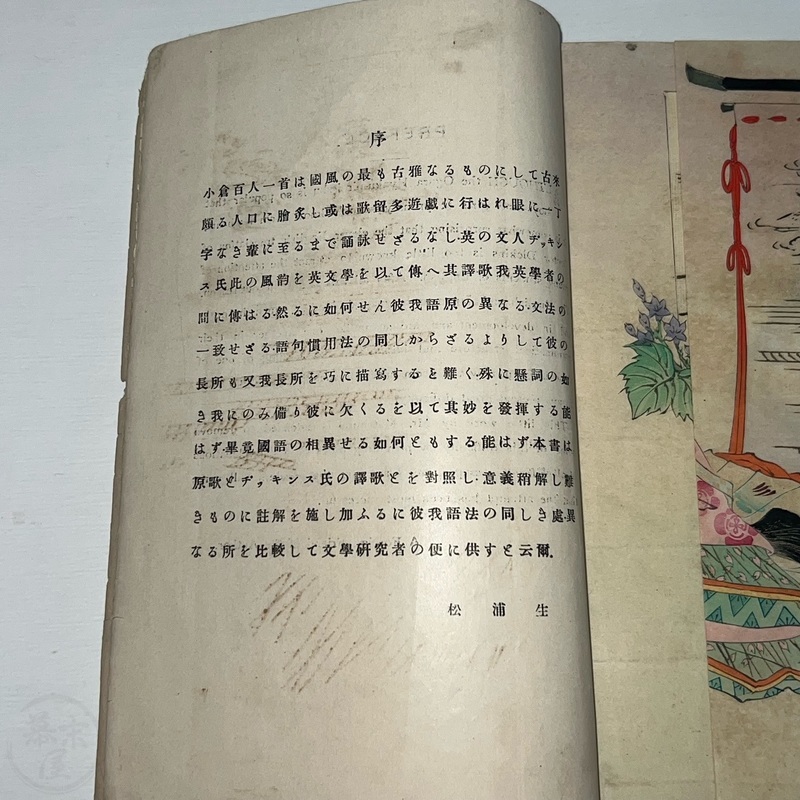 序
小倉百人一首は國風の最も古雅なるものにして古來
頗る人口に膾炙し或は歌留多遊戯に行はれ眼に一丁
字なき輩に至るまで誦詠せざるなし英の文人ヂッキン
ス氏此の風韵を英文學を以て傳へ其譯歌我英學者の
間に傳はる然るに如何せん彼我語原の異なる文法の
一致せざる語句慣用法の同じからざるよりして彼の
長所も又我長所を巧に描寫すると難く殊に懸詞の如
き我にのみ備り彼に欠くるを以て其妙を發揮する能
はず畢竟國語の相異せる如何ともする能はず本書は
原歌とヂッキンス氏の譯歌とを對照し意義稍解し難
きものに註解を施し加ふるに彼我語法の同しき處異
なる所を比較して文學研究者の便に供すと云爾.
松浦生